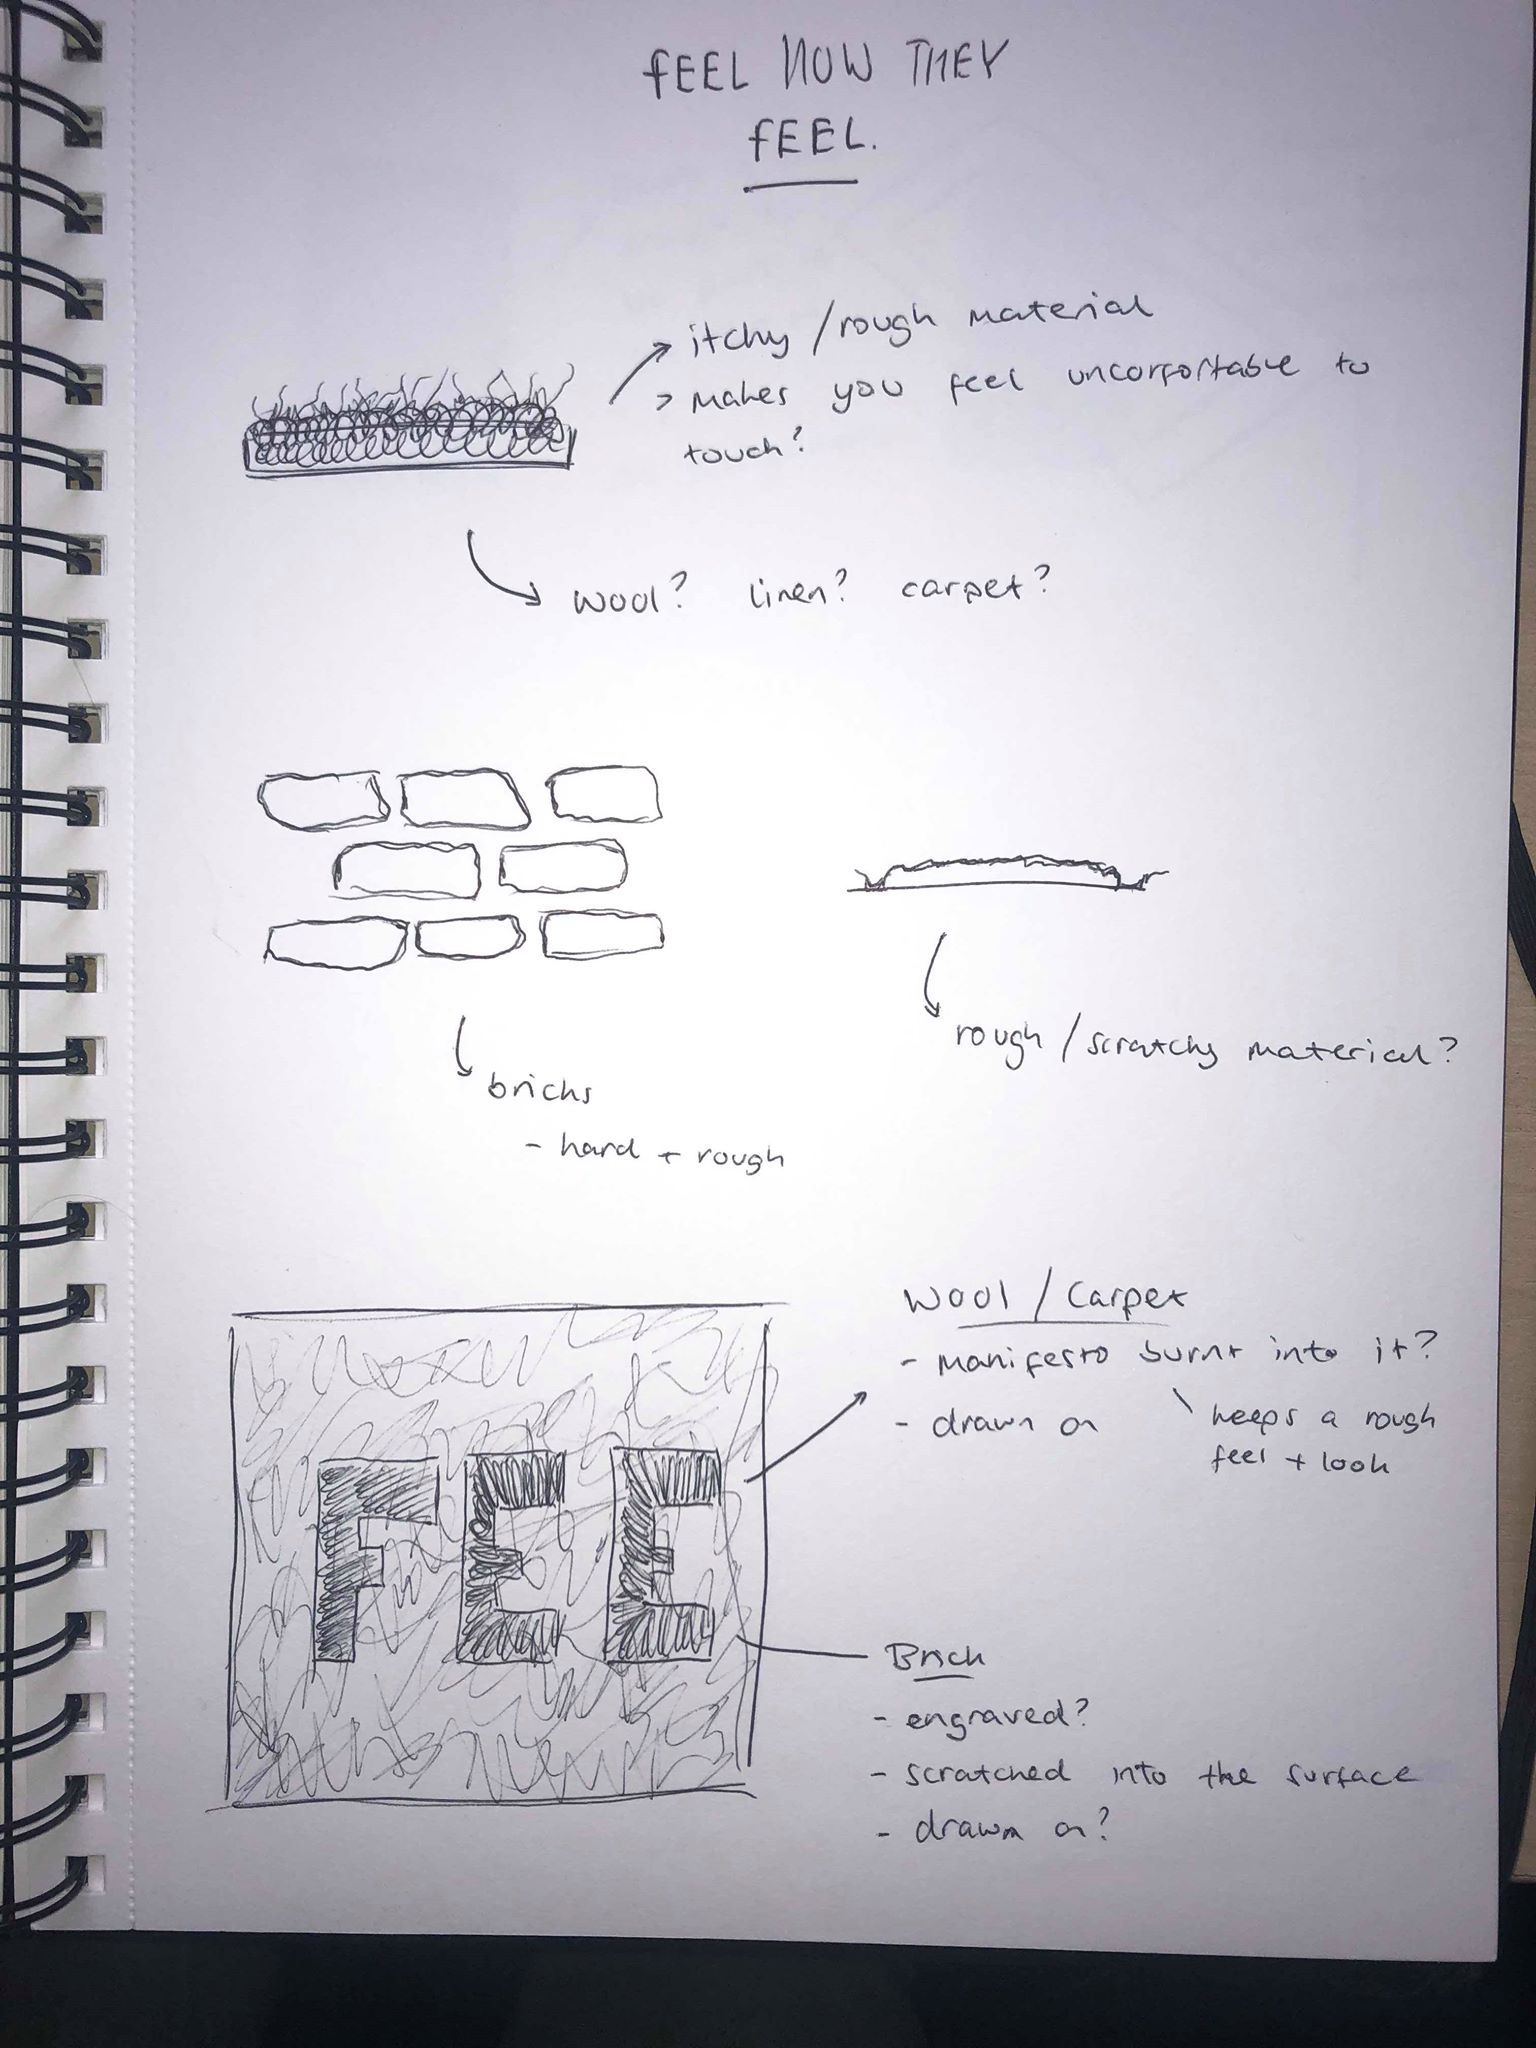 FEEL HOW THEY
FEEL.
itchy / rough material
> makes you feel uncorfortable to
touch?
wool? linen? carpet?
rough / scratchy material?
bricks
- hard + rough
Wool / Carpet
- manifesto burnt into it?
- drawn on
keeps a rough
feel + look
FEE
Brick
- engraved?
- scratched into the surface
- drawn on?